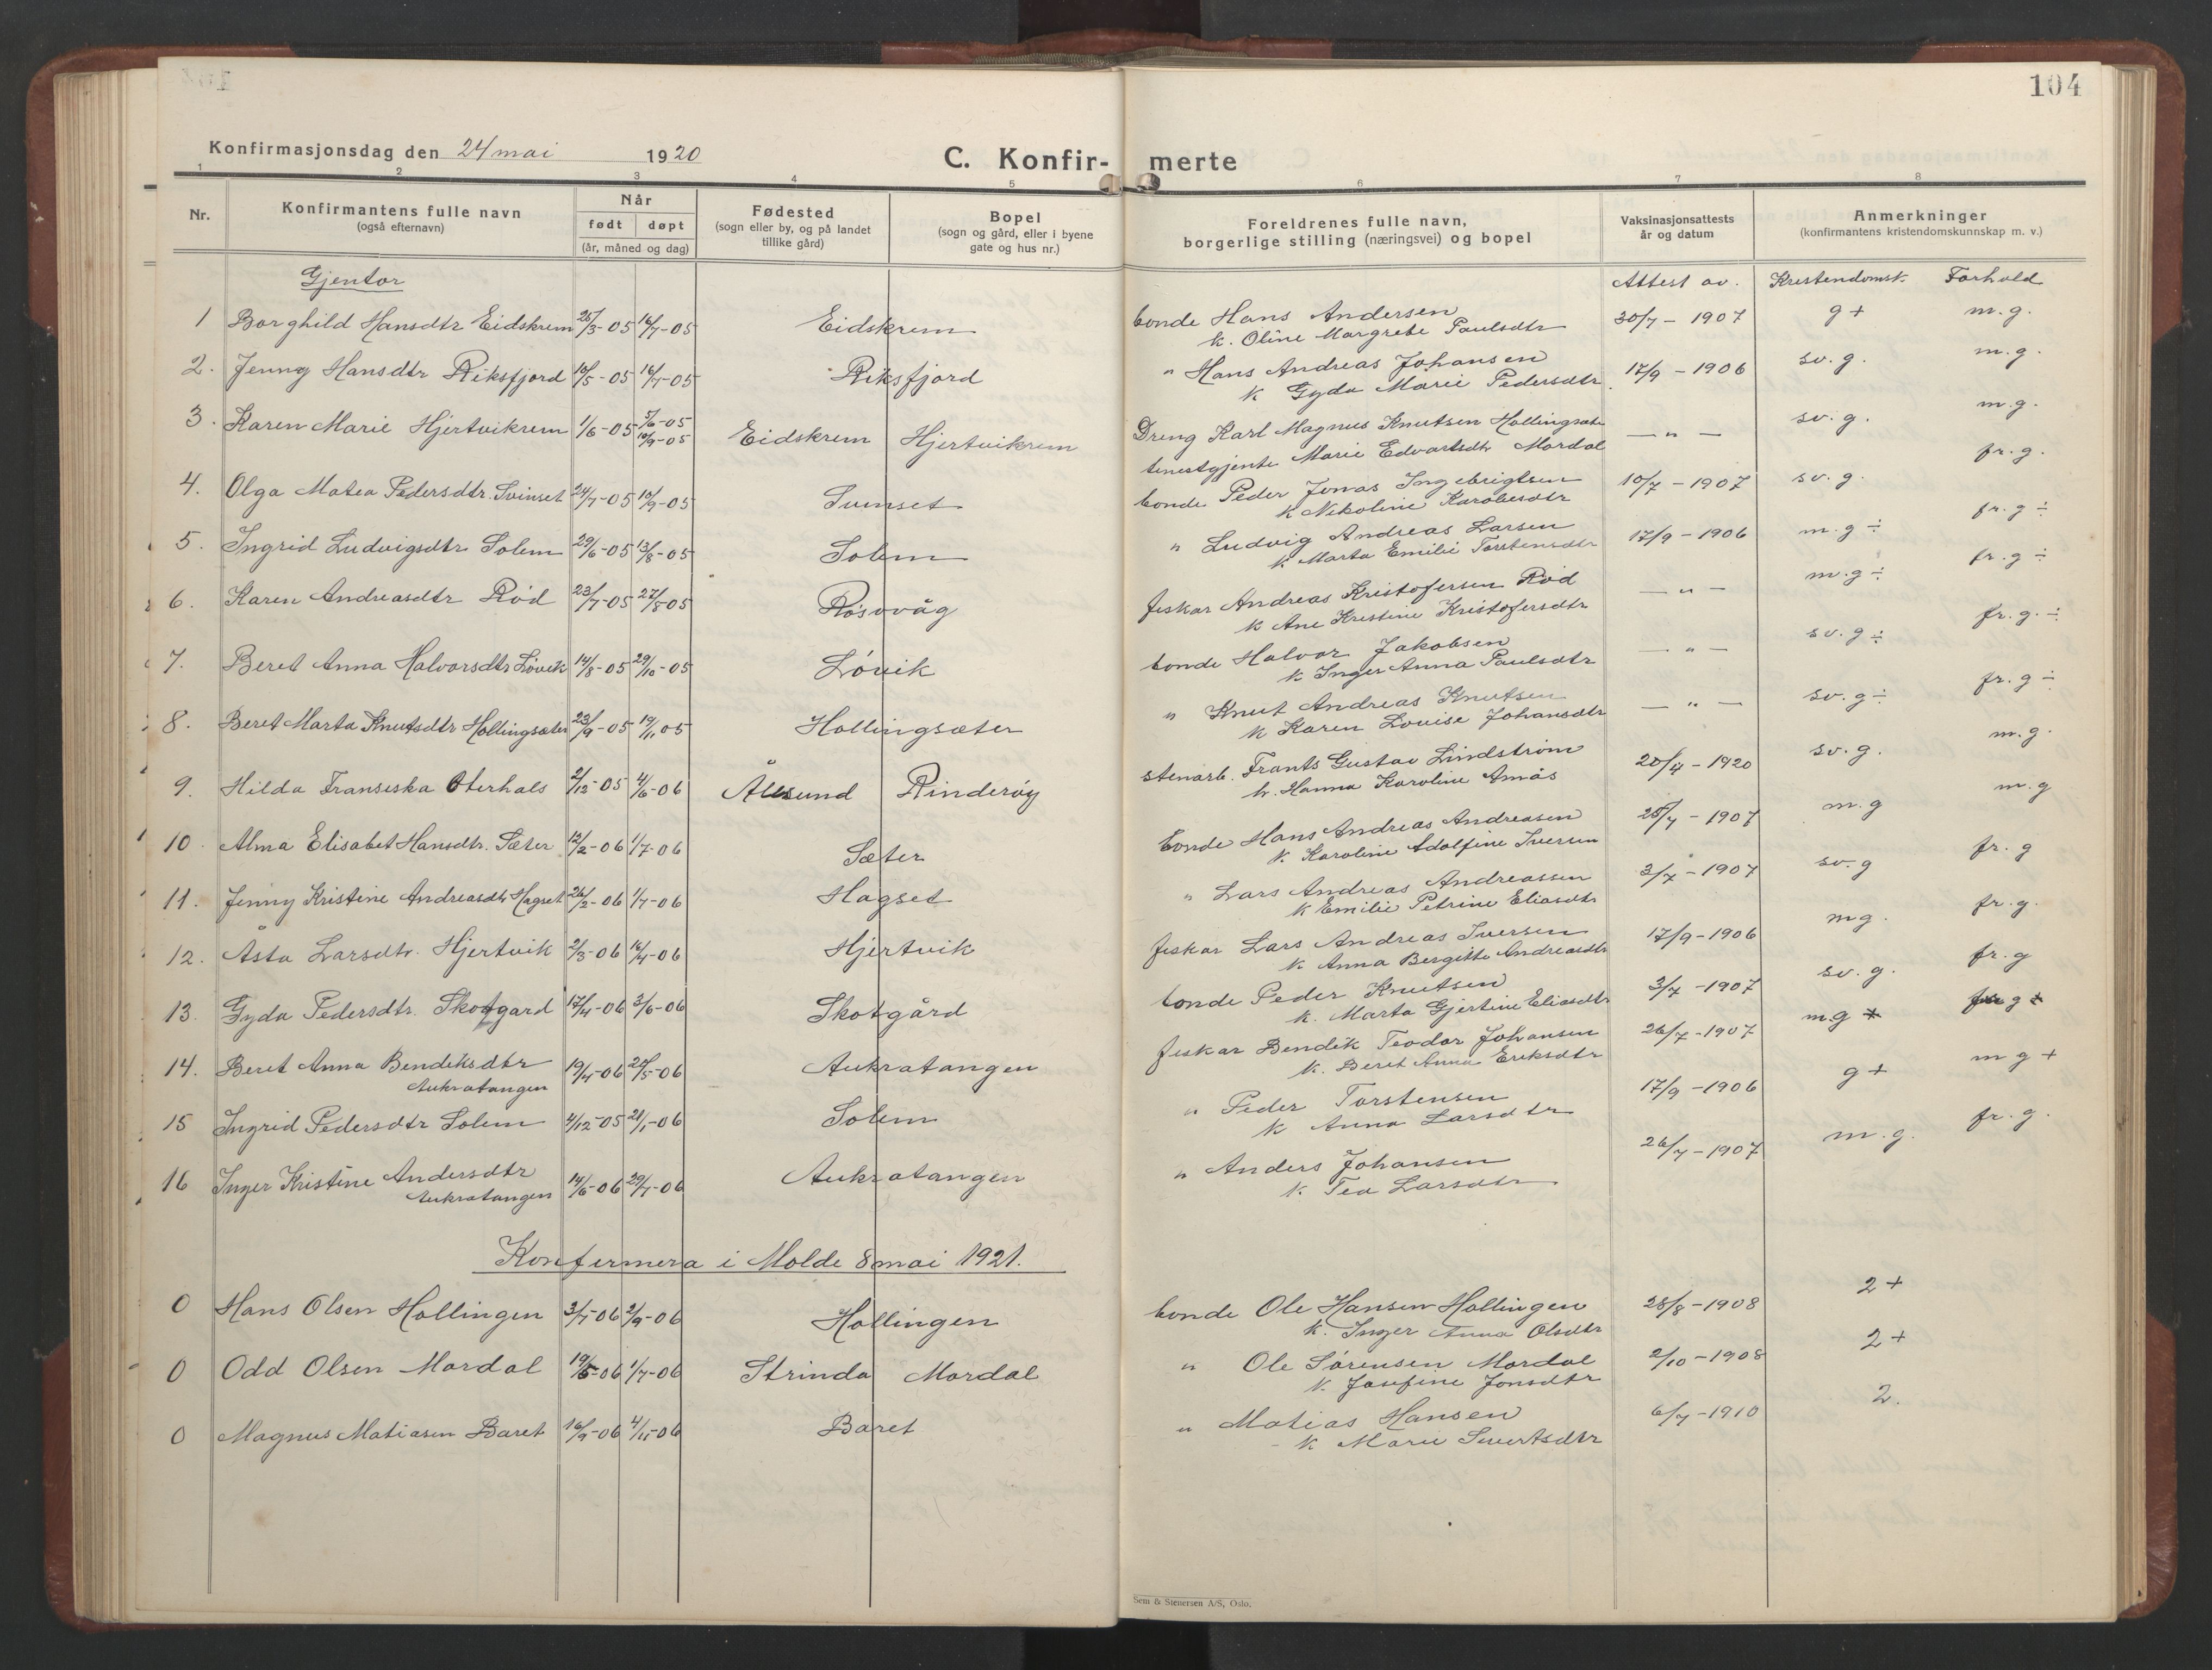 104
Konfirmasjonsdag den 24 mai 1920
C. Konfir- merte
1 2 3 4 5 6 7 8
Nr.
Konfirmantens fulle navn
(også efternavn)
Når
født døpt
(år, måned og dag)
Fødested
(sogn eller by, og på landet
tillike gård)
Bopel
(sogn og gård, eller i byene
gate og hus nr.)
Foreldrenes fulle navn,
borgerlige stilling (næringsvei) og bopel
Vaksinasjonsattests
år og datum
Anmerkninger
(konfirmantens kristendomskunnskap m. v.)
Gjentor
Attest av. Kristendomsk. Forhold
1 Borghild Hansdtr Eidskrem 25/3-05 16/7-05 Eidskrem bonde Hans Andersen 30/7-1907 g+ m.g.
k. Oline Margrete Paulsdtr
2. Jenny Hansdtr Riksfjord 10/5-05 16/7-05 Riksfjord " Hans Andreas Johansen 17/9-1906 sv.g. m.g.
k Gyda Marie Pedersdtr.
3. Karen Marie Hjertvikrem 1/6-05 5/6-05 10/9-05 Eidskrem Hjertvikrem Dreng Karl Magnus Knutsen Hollingsæte — " — sv.g. m.g.
tenestgjente Marie Edvartsdtr Mordal
4. Olga Matea Pedersdtr. Svinset 24/7-05 10/9-05 Svinset bonde Peder Jonas Ingebrigtsen 10/7-1907 sv.g. fr.g.
k Nikoline Karolusdtr
5. Ingrid Ludvigsdtr Solem 29/6-05 13/8-05 Solem " Ludvig Andreas Larsen 17/9-1906 m.g ÷ fr.g ÷
k. Marta Emilie Torstensdtr
6. Karen Andreasdtr Rød 23/7-05 27/8-05 Røsovåg fiskar Andreas Kristofersen Rød — " — m.g ÷ fr.g ÷
k Ane Kristine Kristofersdtr
7. Beret Anna Halvorsdtr Løvik 14/8-05 29/10-05 Løvik bonde Halvor Jakobsen — " — sv.g ÷ fr.g. ÷
k Inger Anna Paulsdtr
8. Beret Marta Knutsdtr Hollingsæter 23/9-05 19/11 05 Hollingsæter " Knut Andreas Knutsen — " — sv.g ÷ fr.g ÷
k Karen Louise Johansdtr
9. Hilda Franseska Oterhals 2/12-05 4/6-06 Ålesund Rinderøy stenarb. Frants Gustav Lindstrøm 20/4-1920 sv.g. m.g.
h. Hanna Karoline Amås
10. Alma Elisabet Hansdtr. Sæter 12/2-06 1/7-06 Sæter bonde Hans Andreas Andreasen 25/7-1907 m.g m.g
k. Karoline Adolfine Iversen
11. Jenny Kristine Andreasdtr Hagset 26/2-06 1/7-06 Hagset " Lars Andreas Andreassen 3/7-1907 sv.g fr.g
k Emilie Petrine Eliasdtr
12. Åsta Larsdtr. Hjertvik 2/3-06 16/4-06 Hjertvik fiskar Lars Andreas Iversen 17/9-1906 mg. fr.g.
k Anna Bergitte Andreasdtr
13. Gyda Pedersdtr. Skotgard 17/4-06 3/6-06 Skotgård bonde Peder Knutsen 3/7-1907 sv.g. fr.g
k. Marta Gjertine Eliasdtr
14. Beret Anna Bendiksdtr 19/4-06 20/5-06 Aukratangen fiskar Bendik Teodor Johansen 26/7-1907 m.g g
Aukratangen k. Beret Anna Eriksdtr
15 Ingrid Pedersdtr Solem 4/12-05 21/1-06 Solem " Peder Torstensen 17/9-1906 g+ m g +
k Anna Larsdtr
16 Inger Kristine Andersdtr 14/6-06 29/7-06 Aukratangen " Anders Johansen 26/7-1907 m.g. fr.g.
Aukratangen k. Tea Larsdtr
Konfermera i Molde 8 mai 1921.
0 Hans Olsen Hollingen 3/7-06 2/9-06 Hollingen bonde Ole Hansen Hollingen 28/8-1908 2+
k. Inger Anna Olsdtr
0 Odd Olsen Mordal 19/5-06 1/7-06 Strinda Mordal " Ole Sørensen Mordal 2/10-1908 2+
k. Josefine Jonsdtr
0 Magnus Matiasen Baret 16/9-06 4/11-06 Baret " Matias Hansen 6/7-1910 2.
k Marie Sivertsdtr
Sem & Stenersen A/S, Oslo.